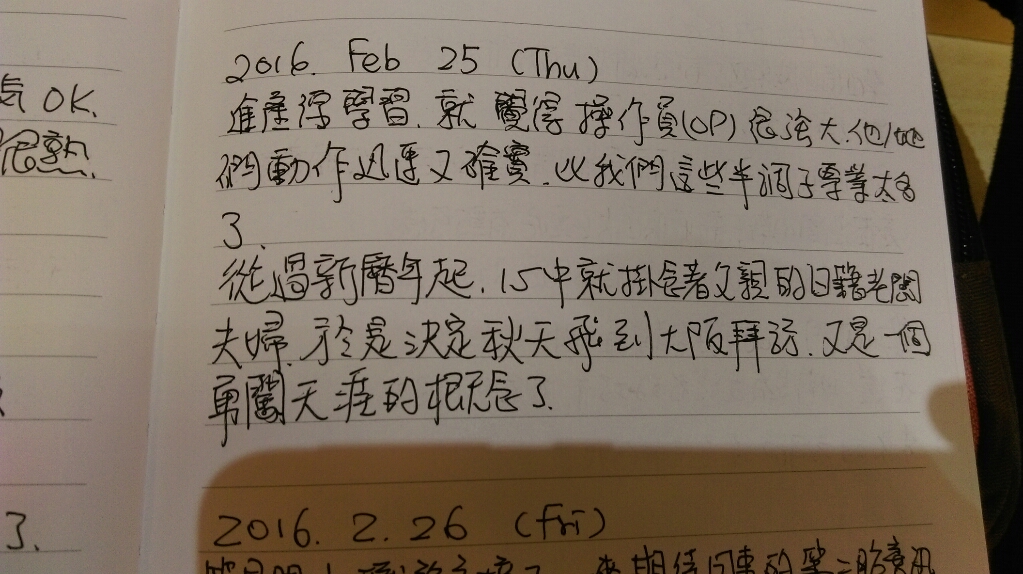 気 OK.
很熟.
3.
2016. Feb 25 (Thu)
進產線學習. 就覺得操作員(OP)很強大. 他/她
們動作迅速又確實. 比我們這些半調子專業太多
了.
從過新曆年起. 心中就掛念著父親的日籍老闆
夫婦. 於是決定秋天飛到大阪拜訪. 又是一個
勇闖天涯的概念了.
2016. 2. 26 (Fri)